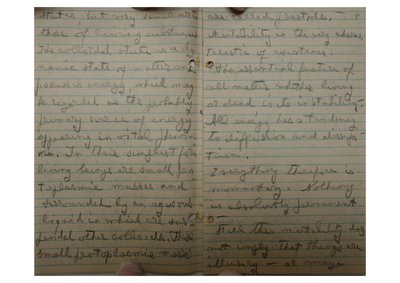 states, but very similar to
those of living substances.
The colloidal state is a dy-
namic state of matter and
possesses energy, which may
be regarded as the probably
primary source of energy
appearing in vital phenom
ena. In their simplest form
living beings are small pro
toplasmic masses and
surrounded by an aqueous
liquid in which are sus-
pended other colloids. These
small protoplasmic masses
are crystalloids. — 9
Mutability is the very charac
teristic of existence.
The essential feature of
all matter whether living
or dead is its instability.
All energy has a tendency
to diffusion and dissipa
tion.
Everything therefore is
momentary. Nothing
is absolutely permanent
Still this mutability does
not imply that things are
illusory — or maya